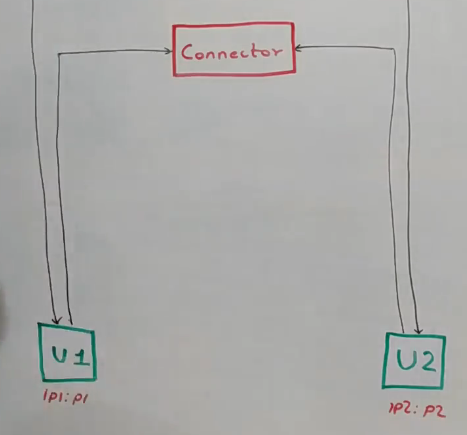 Connector
U1
U2
IP1: P1
IP2: P2